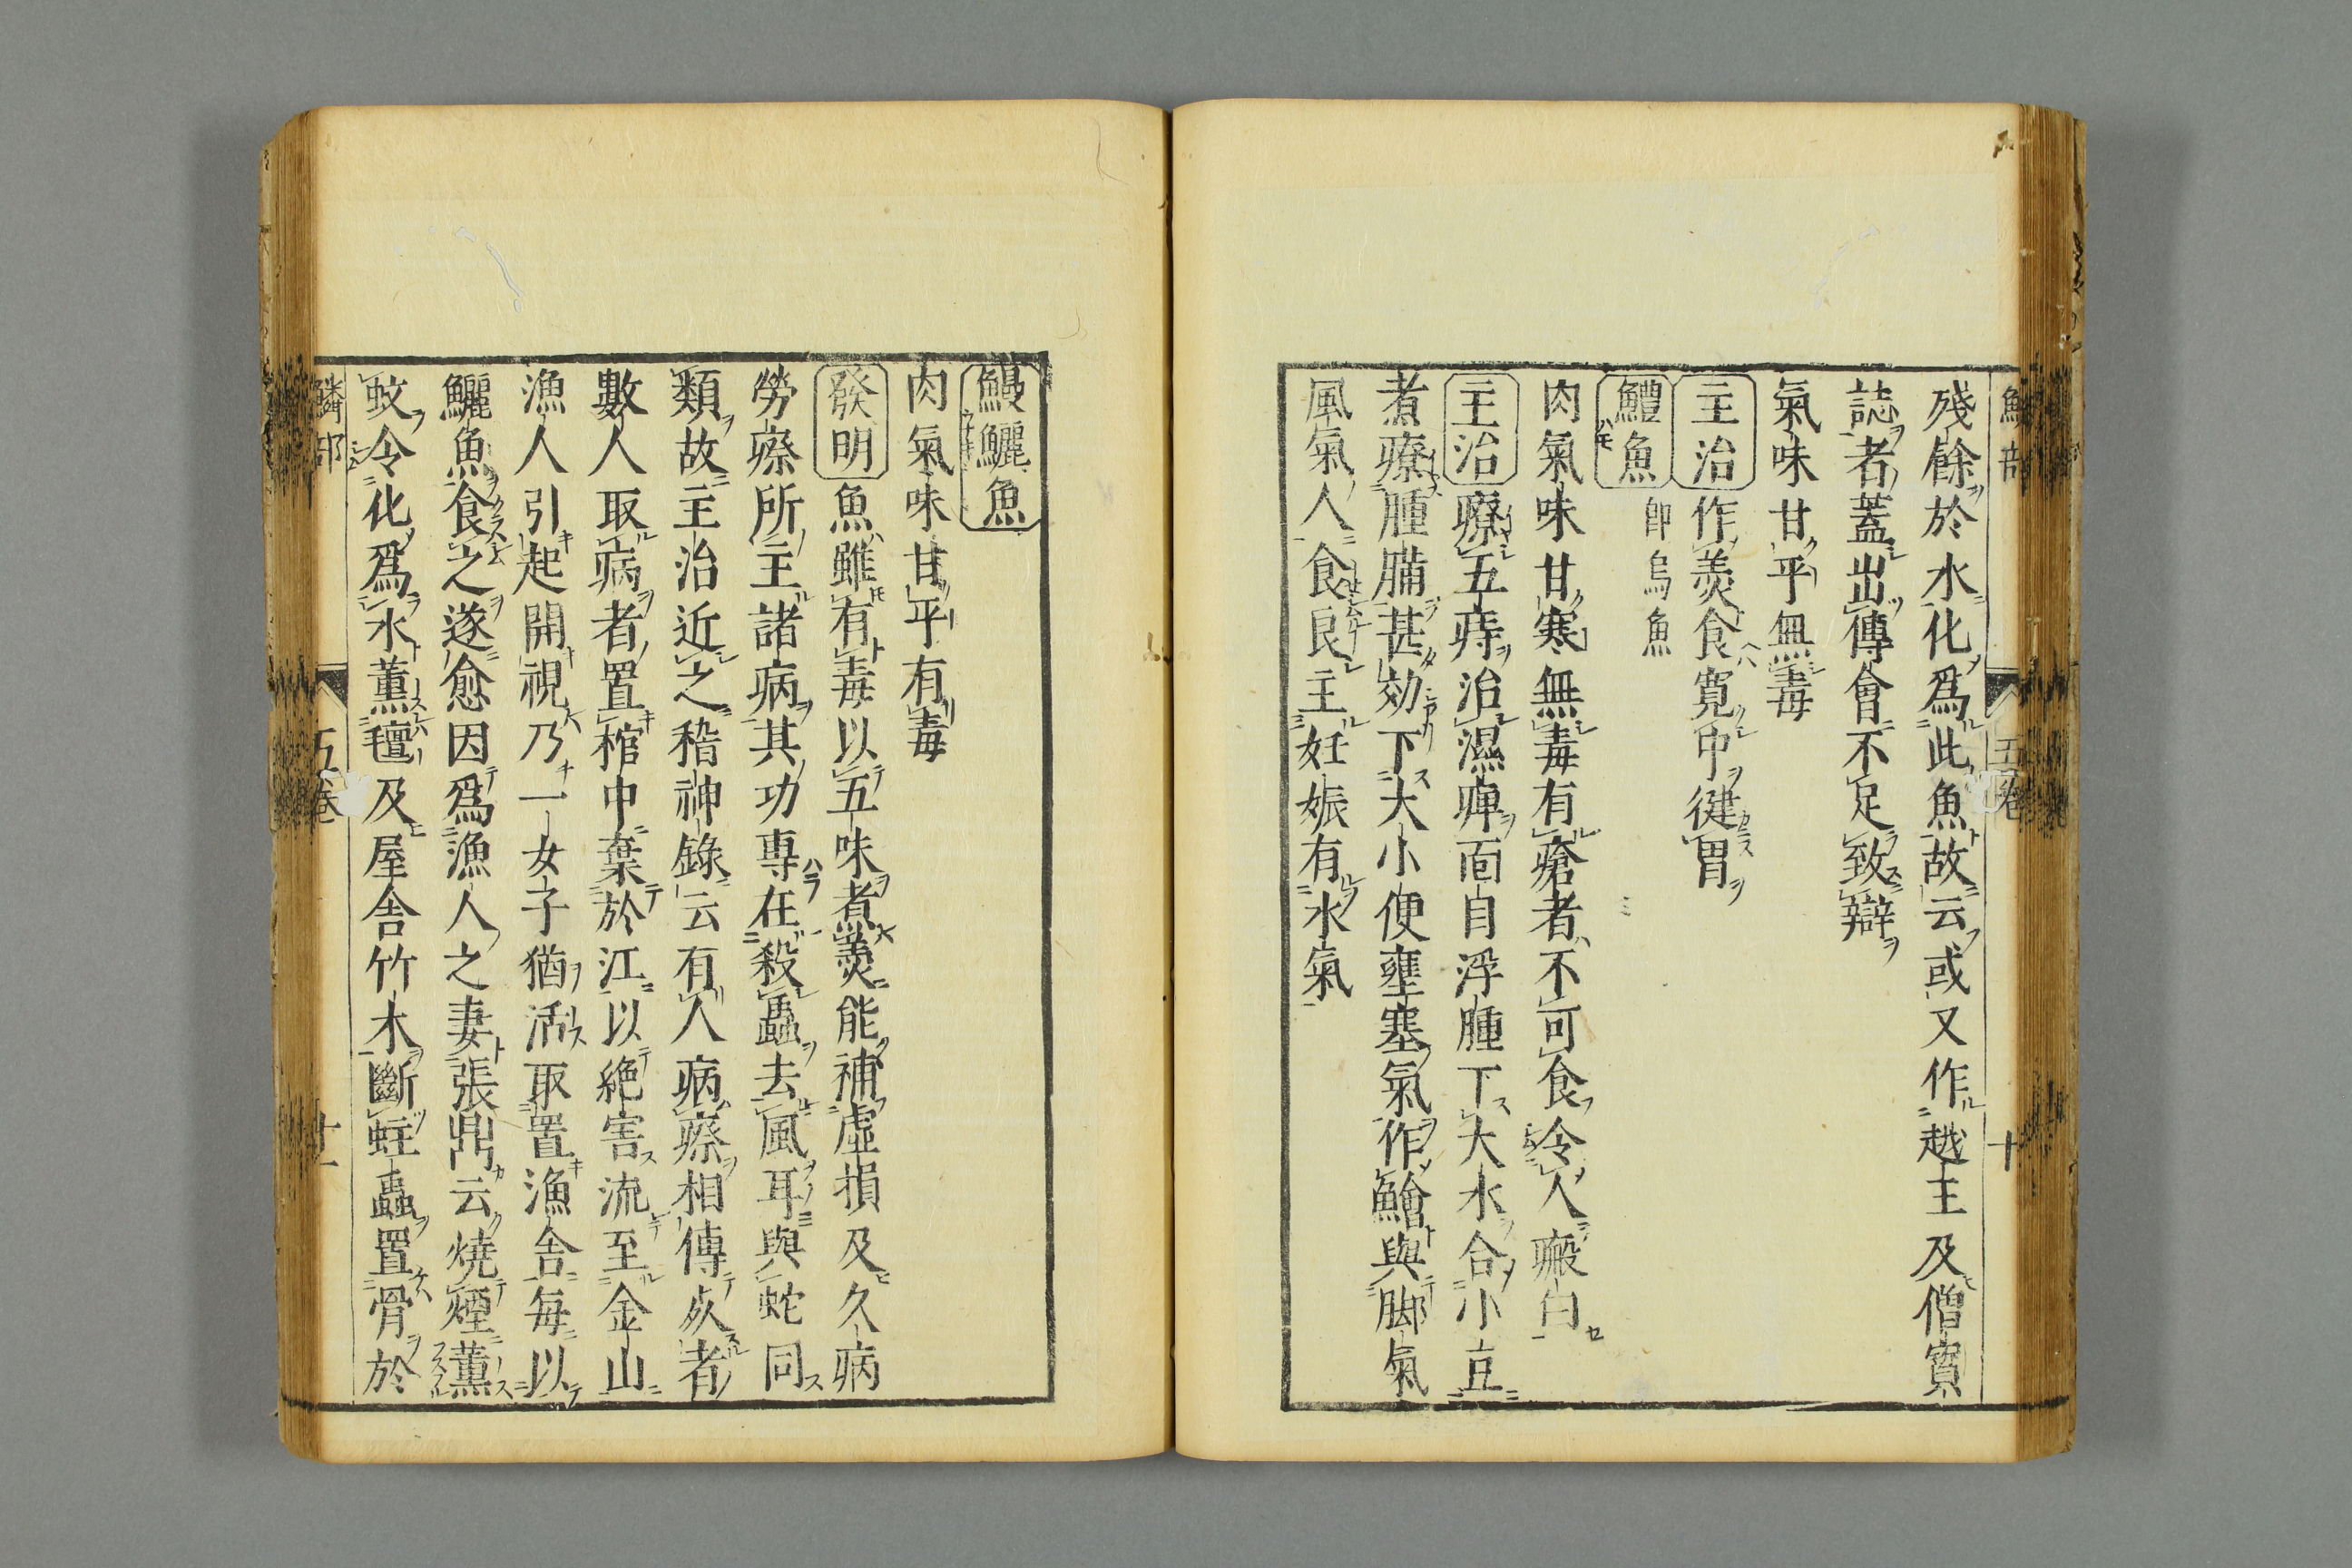 殘餘於水化爲此魚故云或又作越王及僧寳
誌者蓋出傅會不足致辯
氣味甘平無毒
主治作羹食寬中健胃
鱧魚 卽烏魚
肉氣味甘寒無毒有瘡者不可食令人瘢白
主治療五痔治濕痺面目浮腫下大水合小豆
煮療腫滿甚効下大小便壅塞氣作鱠與脚氣
風氣人食良主妊娠有水氣
鰻鱺魚
肉氣味甘平有毒
發明魚雖有毒以五味煮羹能補虛損及久病
勞瘵所主諸病其功專在殺蟲去風耳與蛇同
類故主治近之稽神錄云有人病瘵相傳㱁者
數人取病者置棺中棄於江以絶害流至金山
漁人引起開視乃一女子猶活取置漁舎毎以
鱺魚食之遂愈因爲漁人之妻張鼎云燒煙薰
蚊令化爲水薰氊及屋舎竹木斷蛀蟲置骨於
鱗部 五卷 十一